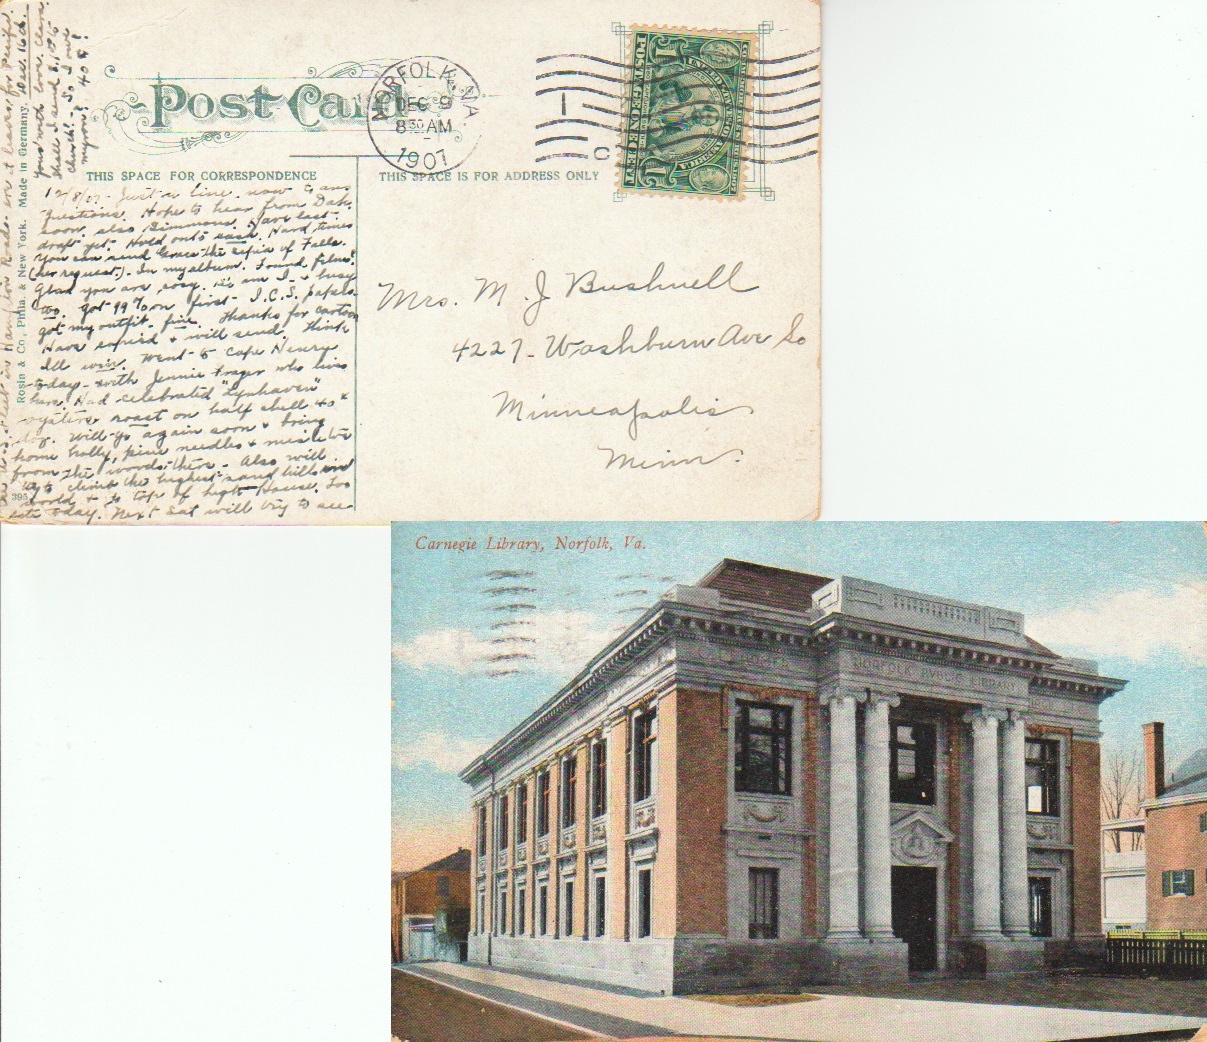 Post Card
NORFOLK, VA
DEC 9
8 30 AM
1907
POSTAGE ONE CENT
1
1
THIS SPACE FOR CORRESPONDENCE
THIS SPACE IS FOR ADDRESS ONLY
12/8/07 - Just a line now to ans
questions. Hope to hear from Dah.
soon. also Simmons. Have last
draft yet. Hold onto each. Hard times
you can send Grace the sepia of Falls.
(her request) - In my album. Found films!
Glad you are cosy. it's am I - & busy
too. Got 99% on first - I.C.S. papers.
got my outfit - fine. Thanks for cartoon
Have copied & will send. Think
I'll win. Went to Cape Henry
to-day - with Jennie Frazer who lives
here. Had celebrated "Lynhaven"
oysters roast on half shell 40 ¢
doz. Will go again soon & bring
home holly, pine needles & mistletoe
from the woods there - Also will
try to climb the highest sand hills
world & to top of light House. Too
late today. Next Sat will try to see
Fleet in Hampton Roads - ere it leaves for Pacific.
Dec. 16th.
Yours with love. Clara.
Shall I send
church? - So I owe
myron? 40 ¢?
Rosin & Co., Phila. & New York. Made in Germany.
395
Mrs. M. J Bushnell
4227 - Washburn Ave So
Minneapolis
Minn.
Carnegie Library, Norfolk, Va.
NORFOLK PVBLIC LIBRARY